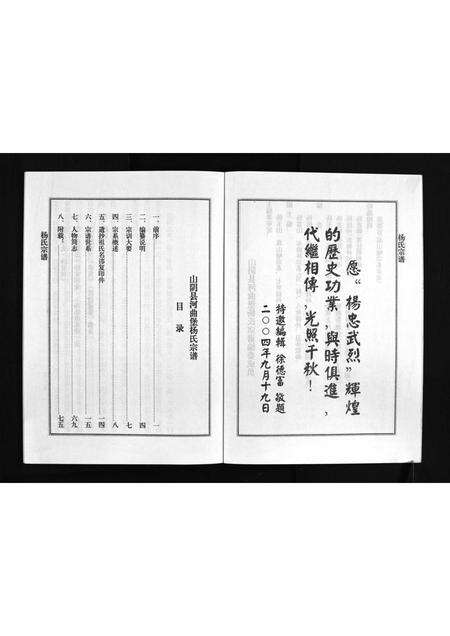 杨氏宗谱
愿“楊忠武烈”輝煌
的歷史功業,與時俱進,
代繼相傳,光照千秋!
特邀編輯 徐德富 敬題
二〇〇四年九月十九日
山阴县河曲堡杨氏宗谱
目录
一、前序 一
二、编纂说明 四
三、宗训大要 七
四、宗系继述 八
五、遗抄祖氏名部复印件 一四
六、宗谱世系 一五
七、人物简志 六九
八、附载: 七五
杨氏宗谱